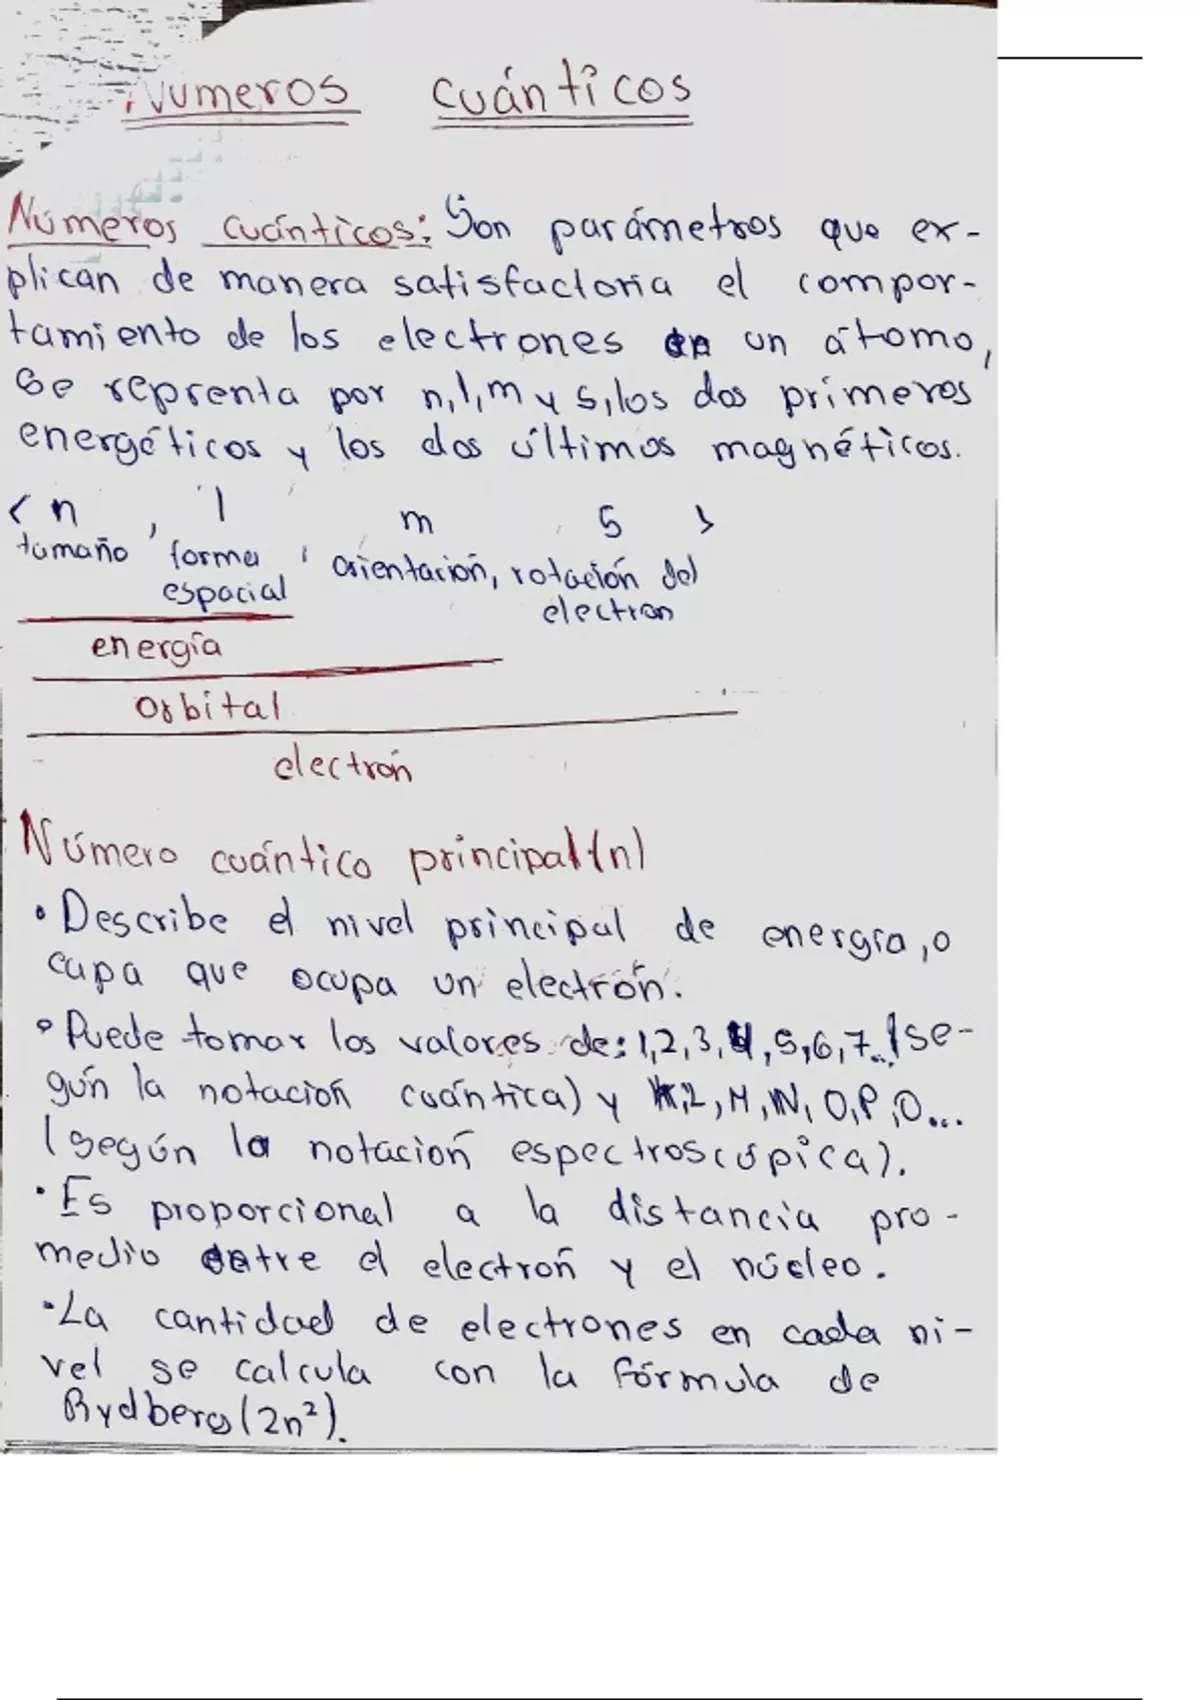 Numeros cuánticos
Números cuánticos: Son parámetros que ex-
plican de manera satisfactoria el compor-
tamiento de los electrones en un átomo,
se reprenta por n, l, m y s, los dos primeros
energéticos y los dos últimos magnéticos.
< n , l m s >
tamaño, forma, orientación, rotación del
espacial electron
energía
orbital
electrón
Número cuántico principal (n)
• Describe el nivel principal de energía, o
capa que ocupa un electrón.
• Puede tomar los valores de: 1,2,3,4,5,6,7... (se-
gún la notación cuántica) y K,L,M,N,O,P,Q...
(según la notación espectroscópica).
• Es proporcional a la distancia pro-
medio entre el electrón y el núcleo.
• La cantidad de electrones en cada ni-
vel se calcula con la fórmula de
Rydberg (2n²).